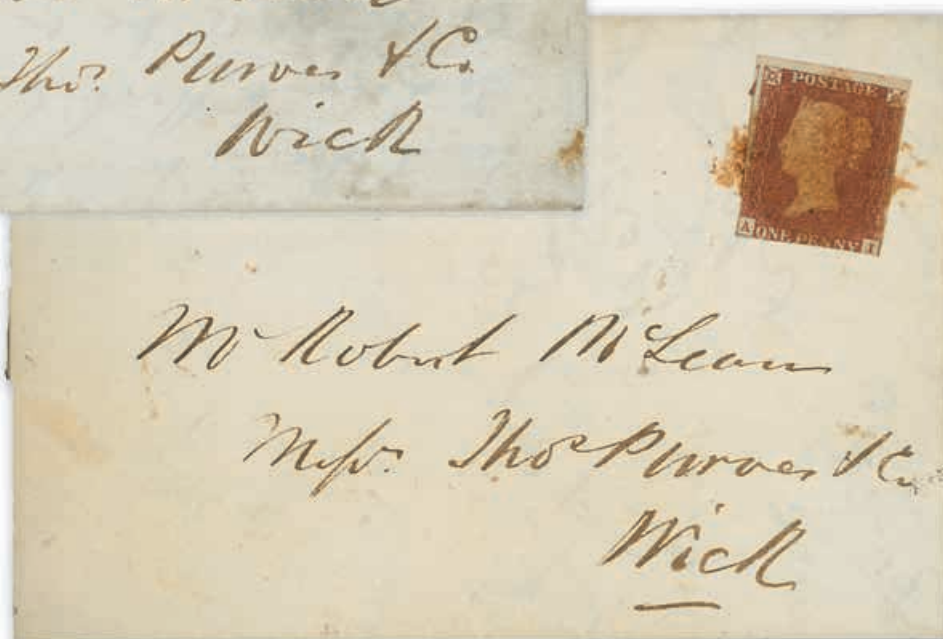 Thos. Purves & Co.
Wick
POSTAGE
A ONE PENNY I
Mr Robert McLean
Messrs. Thos Purves & Co.
Wick